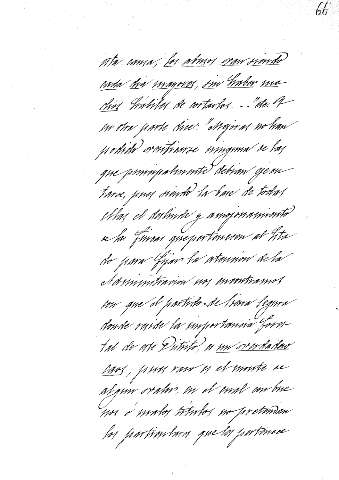 66
esta causa; los abusos van siendo
cada dia mayores, sin haber me-
dios hábiles de cortarlos - - " &a. Y
en otra parte dice: "Mejoras no han
podido verificarse ninguna de las
que principalmente debian ejecu
tarse, pues siendo la base de todas
ellas el deslinde y amojonamiento
de las fincas que pertenecen al Esta
do para fijar la atencion de la
Administracion nos encontramos
con que el partido de Segura
donde reside la importancia fores-
tal de este Distrito es un verdadero
caos, pues raro es el monte de
algun valor en el cual con bue
nos ó malos titulos no pretendan
los particulares que les pertenece